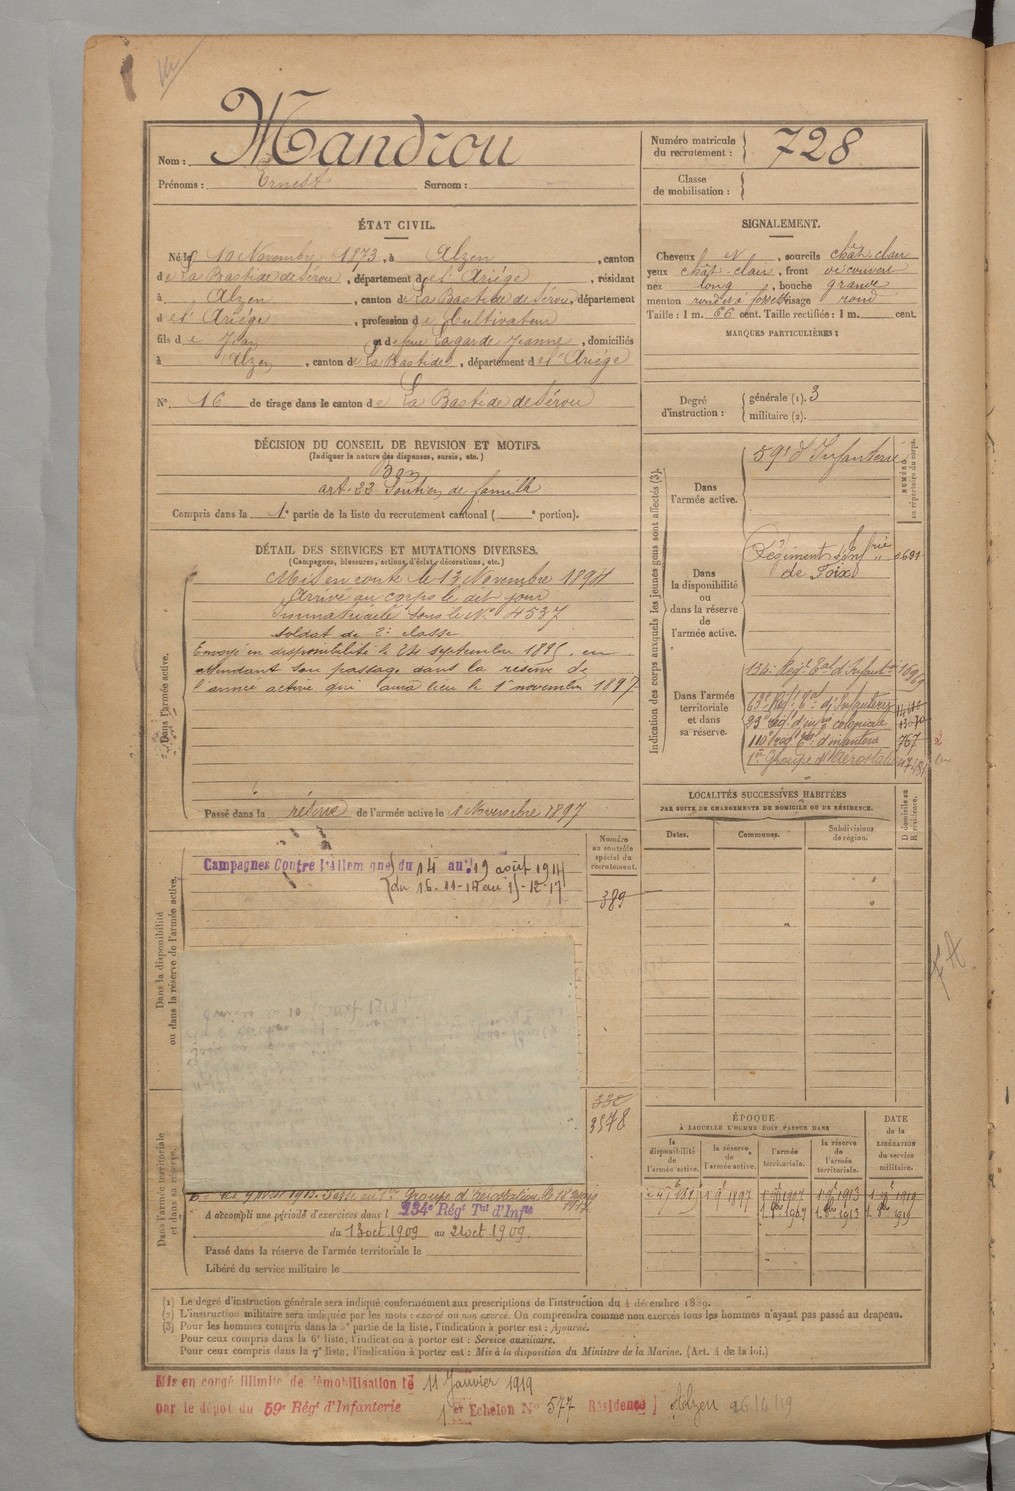 Mandrou
Nom :
Prénoms : Ernest Surnom :
Numéro matricule du recrutement : 728
Classe de mobilisation :
ÉTAT CIVIL.
Né le 10 Novembre 1873, à Alzen, canton
de La Bastide de Sérou, département de l'Ariège, résidant
à Alzen, canton de La Bastide de Sérou, département
de l'Ariège, profession de Cultivateur
fils de Jean et de feue Lagarde Jeanne, domiciliés
à Alzen, canton de La Bastide, département de l'Ariège
N° 16 de tirage dans le canton de La Bastide de Sérou
SIGNALEMENT.
Cheveux N, sourcils chât. clair
yeux chât-clair, front découvert
nez long, bouche grande
menton rond à fossette visage rond
Taille : 1 m. 66 cent. Taille rectifiée : 1 m. cent.
MARQUES PARTICULIÈRES :
Degré d'instruction : générale (1). 3
militaire (2).
DÉCISION DU CONSEIL DE REVISION ET MOTIFS.
(Indiquer la nature des dispenses, sursis, etc.)
Bon
art. 22 Soutien de famille
Compris dans la 1e partie de la liste du recrutement cantonal ( e portion).
DÉTAIL DES SERVICES ET MUTATIONS DIVERSES.
(Campagnes, blessures, actions d'éclat, décorations, etc.)
Dans l'armée active.
Mis en route le 13 Novembre 1894
Arrivé au corps le dit jour
Immatriculé sous le N° 4537
soldat de 2e classe
Envoyé en disponibilité le 24 septembre 1895, en
attendant son passage dans la réserve de
l'armée active qui aura lieu le 1er novembre 1897
Passé dans la réserve de l'armée active le 1 Novembre 1897
Indication des corps auxquels les jeunes gens sont affectés (3).
NUMÉRO au répertoire du corps.
Dans l'armée active.
59e d'Infanterie
Dans la disponibilité ou dans la réserve de l'armée active.
Régiment d'Infrie
de Foix
Dans l'armée territoriale et dans sa réserve.
134e Régt Eal d'Infant
63e Régt d'Infanterie
23e régt d'infrie coloniale
110e régt d'infanterie 767
1er Groupe d'Aérostat
LOCALITÉS SUCCESSIVES HABITÉES
PAR SUITE DE CHANGEMENTS DE DOMICILE OU DE RÉSIDENCE.
Dates. Communes. Subdivisions de région.
D domicile ou R résidence.
Dans la disponibilité ou dans la réserve de l'armée active.
Numéro au contrôle spécial du recrutement.
Campagnes Contre l'Allemagne du 14 au 19 août 1914
du 16-11-14 au 15-12-17
389
3578
FA
Dans l'armée territoriale et dans sa réserve.
Passé au 1er Groupe d'Aérostation le
A accompli une période d'exercices dans l 134e Régt Tal d'Infie
du 13 oct. 1909 au 21 oct. 1909.
Passé dans la réserve de l'armée territoriale le
Libéré du service militaire le
ÉPOQUE
À LAQUELLE L'HOMME DOIT PASSER DANS
la disponibilité de l'armée active.
la réserve de l'armée active.
l'armée territoriale.
la réserve de l'armée territoriale.
DATE de la LIBÉRATION du service militaire.
(1) Le degré d'instruction générale sera indiqué conformément aux prescriptions de l'instruction du 4 décembre 1889.
(2) L'instruction militaire sera indiquée par les mots : exercé ou non exercé. On comprendra comme non exercés tous les hommes n'ayant pas passé au drapeau.
(3) Pour les hommes compris dans la 5e partie de la liste, l'indication à porter est : Ajourné.
Pour ceux compris dans la 6e liste, l'indication à porter est : Service auxiliaire.
Pour ceux compris dans la 7e liste, l'indication à porter est : Mis à la disposition du Ministre de la Marine. (Art. 4 de la loi.)
Mis en congé illimité de démobilisation le 11 Janvier 1919
par le dépôt du 59e Régt d'Infanterie 1er Echelon N° 577 Résidence Alzen 26/4/19